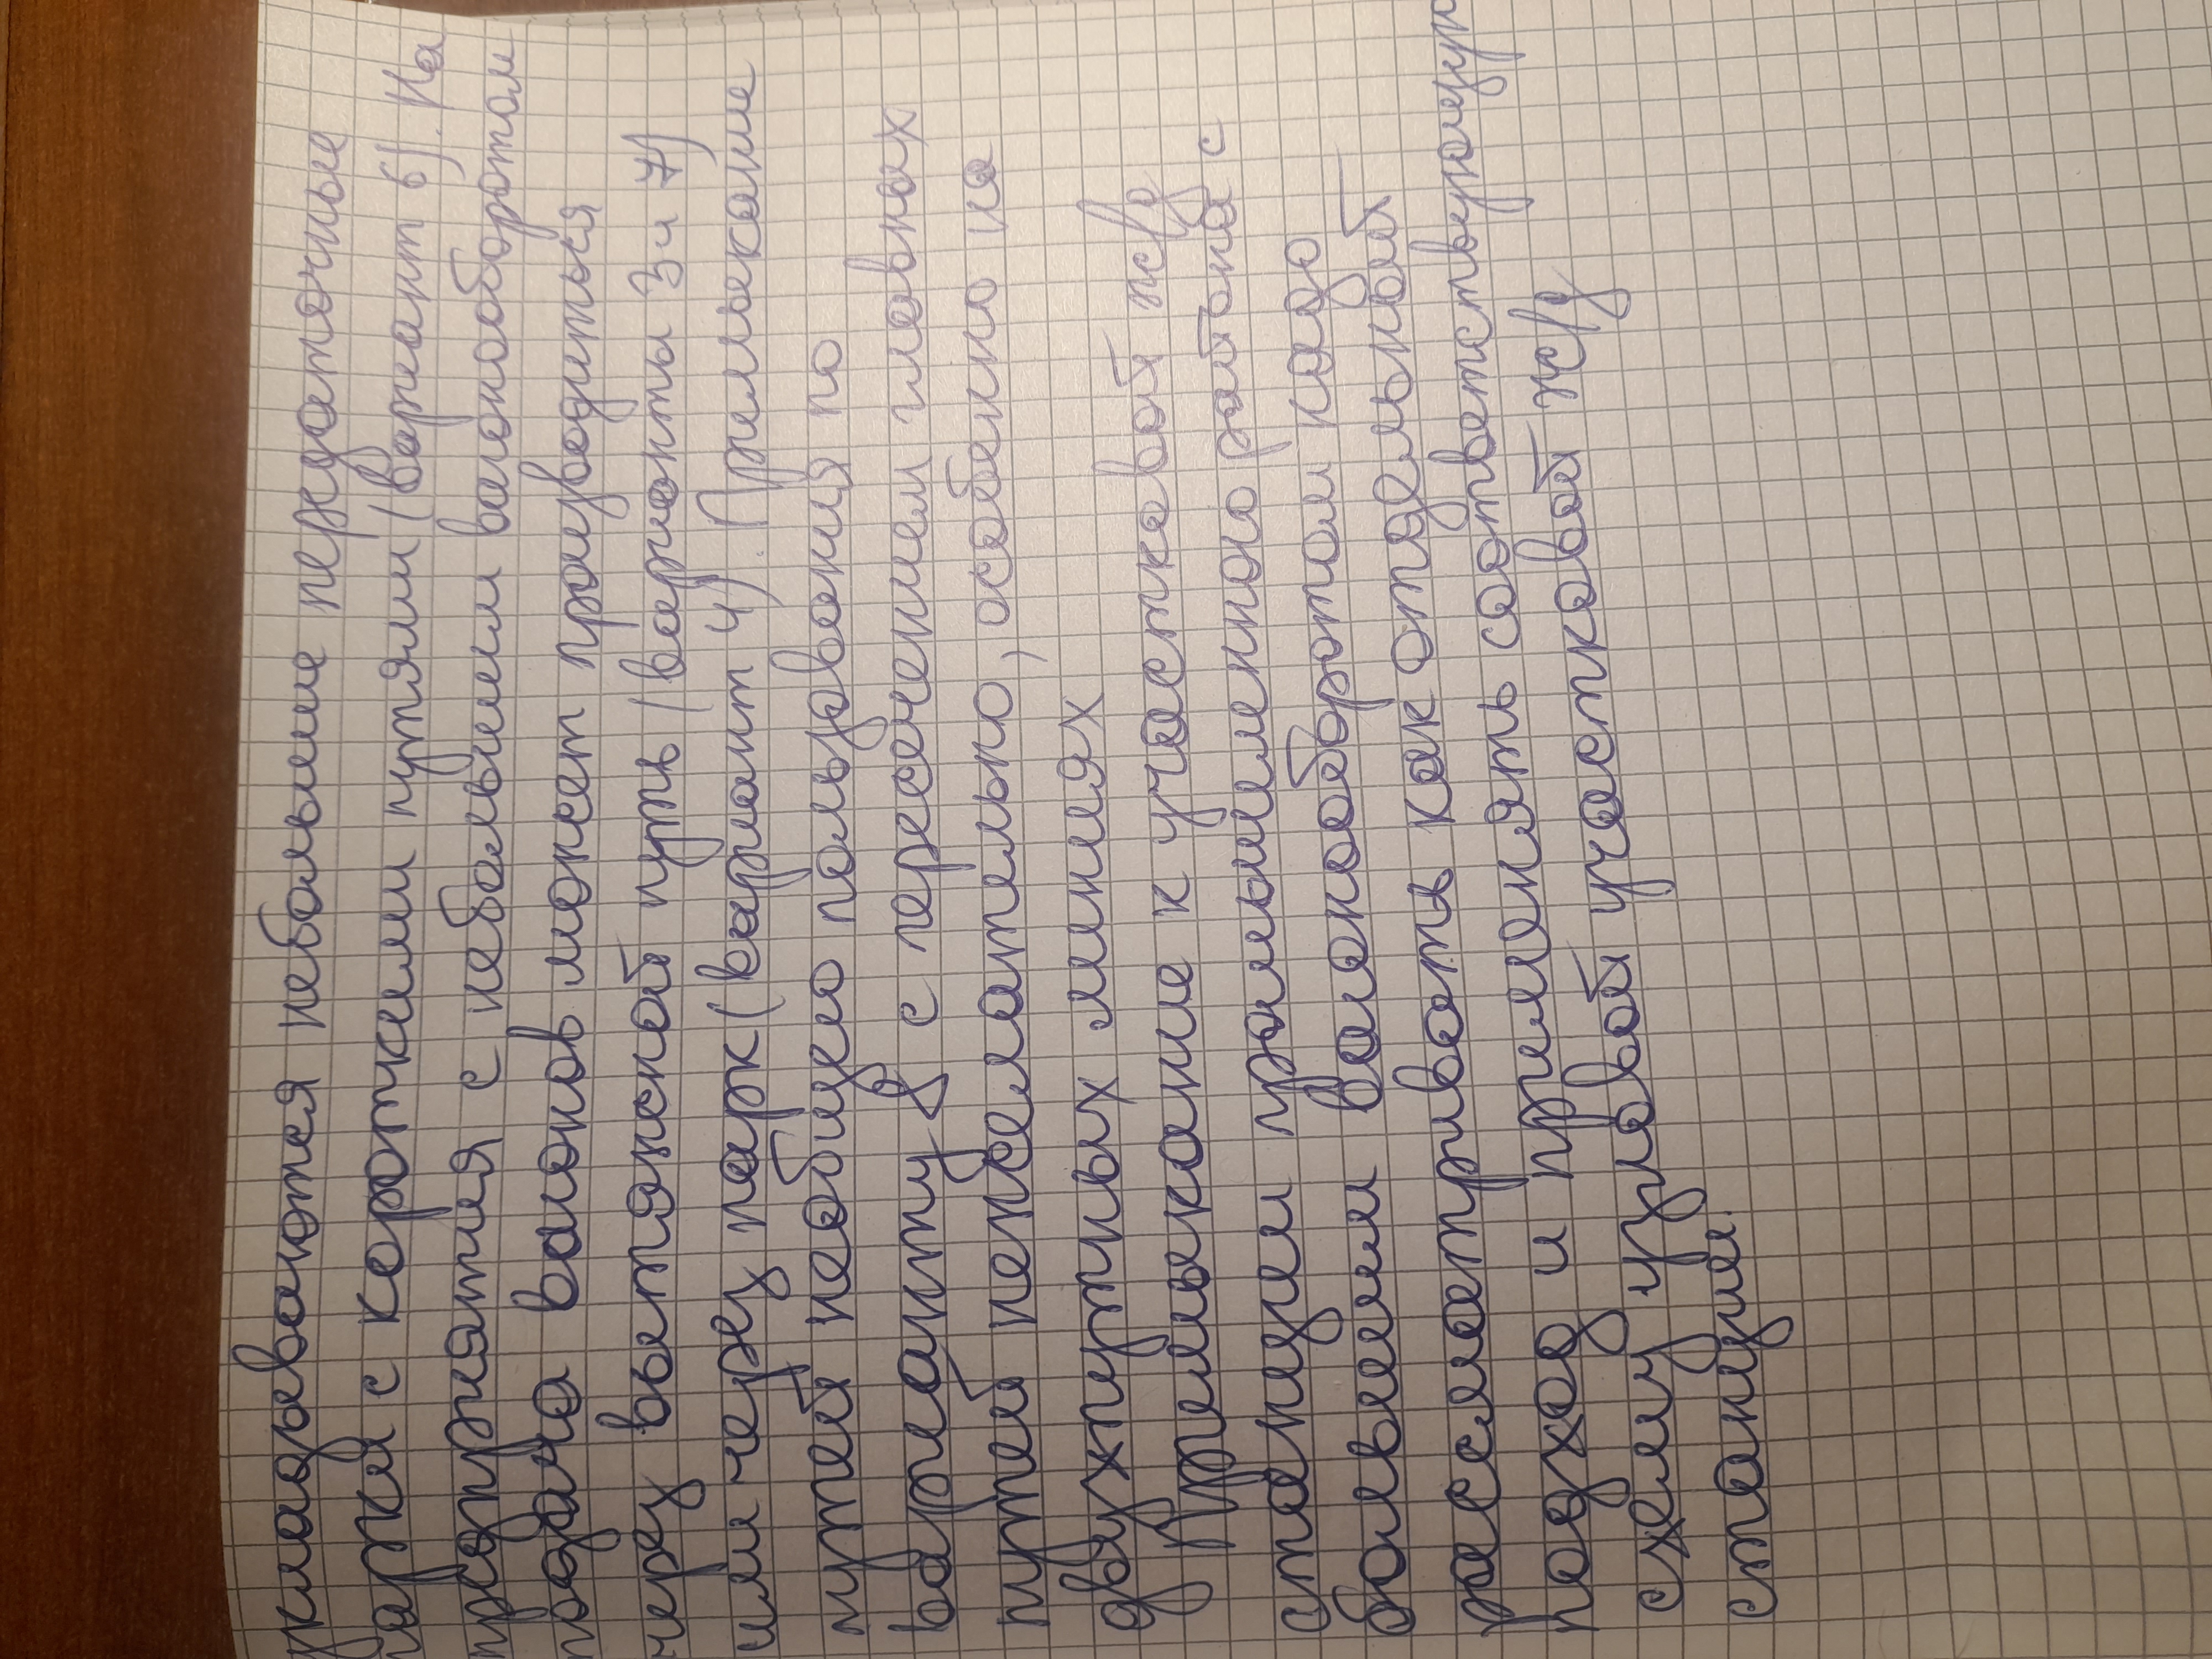 укладываются небольшие передаточные
парки с короткими путями (вариант 6). На
предприятия с небольшим вагонооборотом
подача вагонов может производиться
через вытяжной путь (варианты 3 и 7)
или через парк (вариант 4). Примыкание
путей необщего пользования по
варианту 8 с пересечением главных
путей нежелательно, особенно на
двухпутных линиях
Примыкание к участковой ж/д
станции промышленного района с
большим вагонооборотом надо
рассматривать как отдельный
подход и применять соответствующую
схему узловой участковой ж/д
станции.